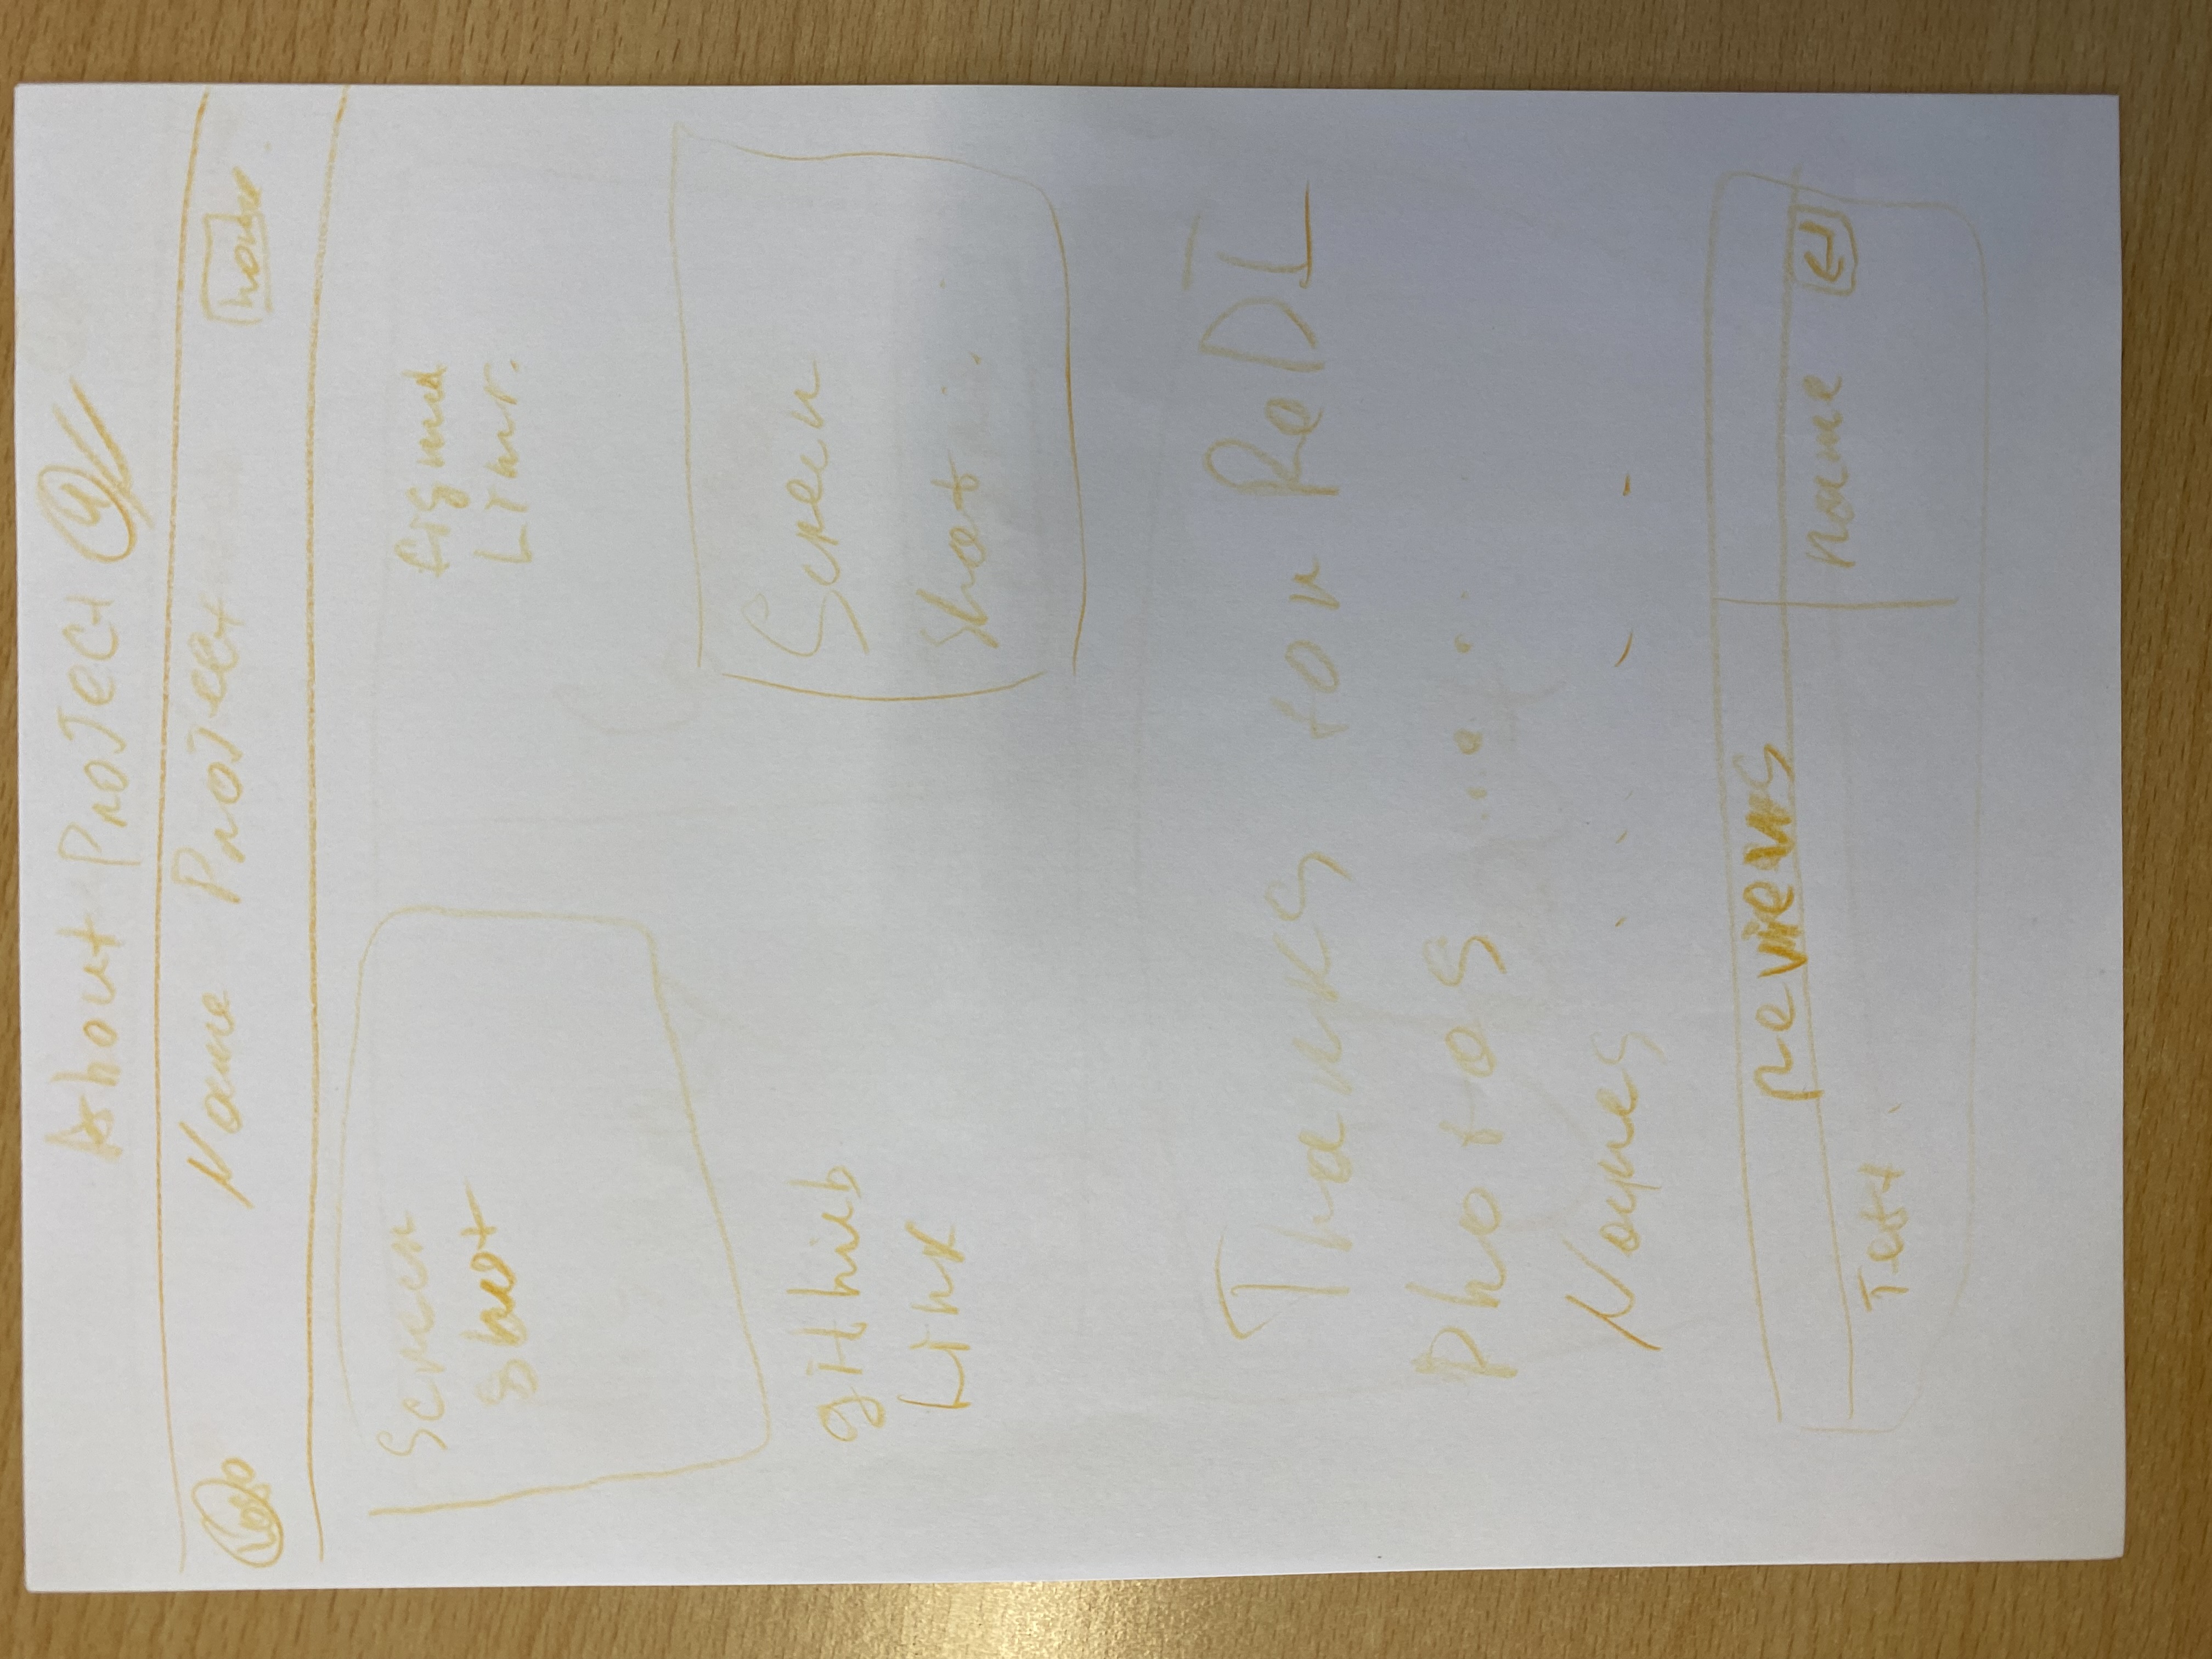 About Project 4
Logo Name Project home
Screen
Shot
figma
Link.
github
Link
Screen
Shot . . .
Thanks for ReDI
Photos ......
Names . . . .
reviews
Text .
name